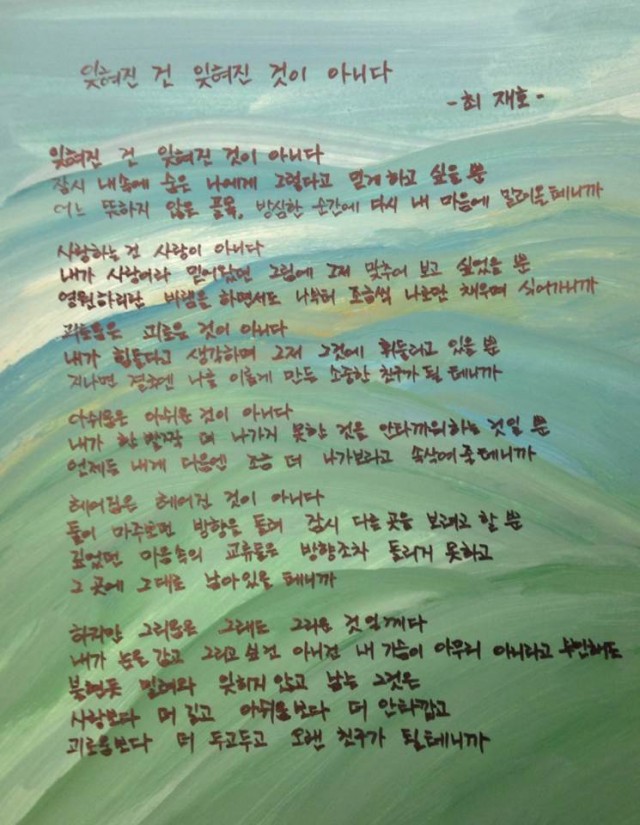 잊혀진 건 잊혀진 것이 아니다
- 최 재호 -
잊혀진 건 잊혀진 것이 아니다
잠시 내속에 숨은 나에게 그렇다고 믿게하고 싶을 뿐
어느 뜻하지 않은 길목, 방심한 순간에 다시 내 마음에 밀려올테니까
사랑하는건 사랑이 아니다
내가 사랑이라 믿어왔던 그림에 그저 맞추어 보고 싶었을 뿐
영원하리란 바램을 하면서도 나부터 조금씩 나로만 채우며 식어가니까
괴로움은 괴로운 것이 아니다
내가 힘들다고 생각하며 그저 그것에 휘둘리고 있을 뿐
지나면 결국엔 나를 이렇게 만든 소중한 친구가 될 테니까
아쉬움은 아쉬운 것이 아니다
내가 한발짝 더 나가지 못한 것을 안타까워하는 것일 뿐
언제든 내게 다음엔 조금 더 나가보라고 속삭여줄테니까
헤어짐은 헤어진 것이 아니다
둘이 마주보던 방향을 돌려 잠시 다른 곳을 보려고 할 뿐
깊었던 마음속의 교류들은 방향조차 돌리지 못하고
그 곳에 그대로 남아있을 테니까
하지만 그리움은 그래도 그리운 것일게다
내가 눈을 감고 그리고 싶건 아니건 내 가슴이 아무리 아니라고 부인해도
불현듯 밀려와 잊히지 않고 남는 그것은
사랑보다 더 깊고 아쉬움보다 더 안타깝고
괴로움보다 더 두고두고 오랜 친구가 될테니까